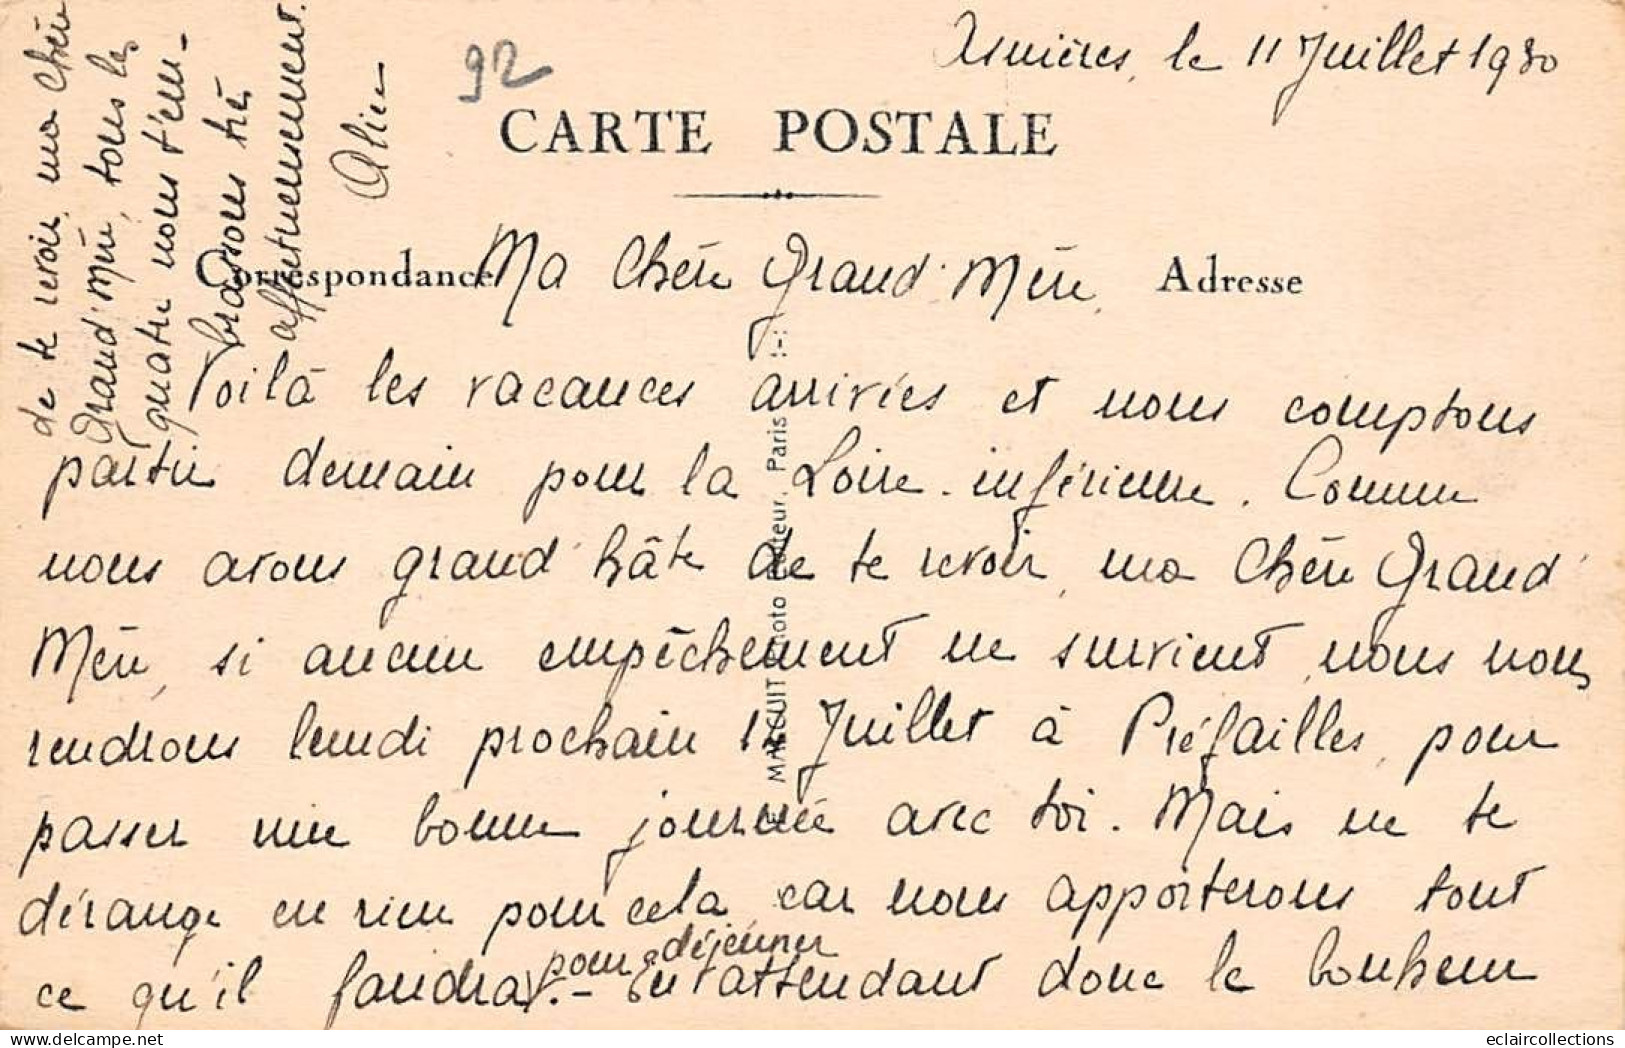 Asnières, le 11 Juillet 1930
92
CARTE POSTALE
Correspondance
Adresse
Ma Chère Grand' Mère,
Voilà les vacances arrivées et nous comptons
partir demain pour la Loire-inférieure. Comme
nous avons grand' hâte de te revoir, ma Chère Grand'
Mère, si aucun empêchement ne survient, nous nous
rendrons lundi prochain Juillet à Préfailles, pour
passer une bonne journée avec toi. Mais ne te
dérange en rien pour cela, car nous apporterons tout
ce qu'il faudra pour déjeuner. - En attendant donc le bonheur
de te revoir, ma Chère
Grand' Mère, tous les
quatre nous t'em-
brassons très
affectueusement.
Aline
F. MARCUIT Photo Editeur. Paris
eclaircollections